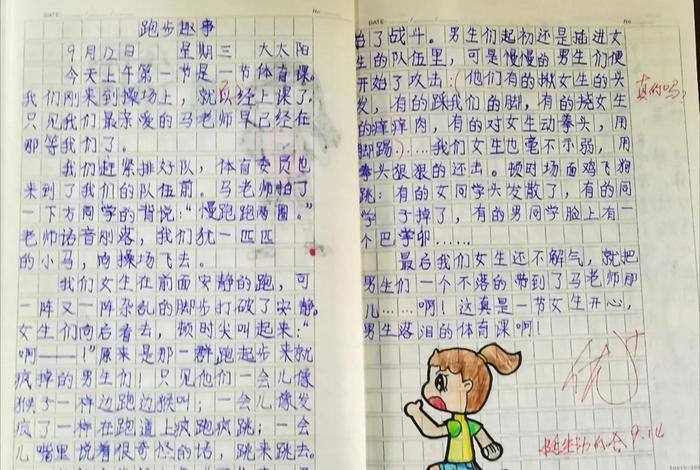 跑步趣事
9月12日 星期三 大太阳
今天上午第一节是一节体育课。
我们刚来到操场上，就以经上课了，
只见我们最亲爱的马老师早已经在
那等我们了。
我们赶紧排好队，体育委员也
来到了我们的队伍前。马老师拍了
一下方同学的背说：“慢跑跑两圈。”
老师话音刚落，我们犹一匹匹
的小马，向操场飞去。
我们女生在前面安静的跑，可
一阵又一阵杂乱的脚步打破了安静。
女生们向后看去，顿时尖叫起来：“
啊——！”原来是那一群跑起步来就
疯掉的男生们！只见他们一会儿像
猴子一样边跑边猴叫；一会儿像发
疯了一样在跑道上疯跑疯跳；一会
儿嘴里说着很奇怪的话，跳来跳去。
DATE
始了战斗。男生们起初还是插进女
生的队伍里，可是慢慢的男生们便
开始了攻击：（他们有的揪女生的头
发，有的踩我们的脚，有的挠女生
的痒痒肉，有的对女生动拳头，用
脚踢）……我们女生也毫不示弱，用
拳头狠狠的还击。顿时场面鸡飞狗
跳：有的女同学头发散了，有的同
学 子掉了，有的男同学脸上有一
个巴掌印……
最后我们女生还不解气，就把
男生们一个不落的带到了马老师那
儿……啊！这真是一节女生开心，
男生落泪的体育课啊！
真的吗？
优
9.14